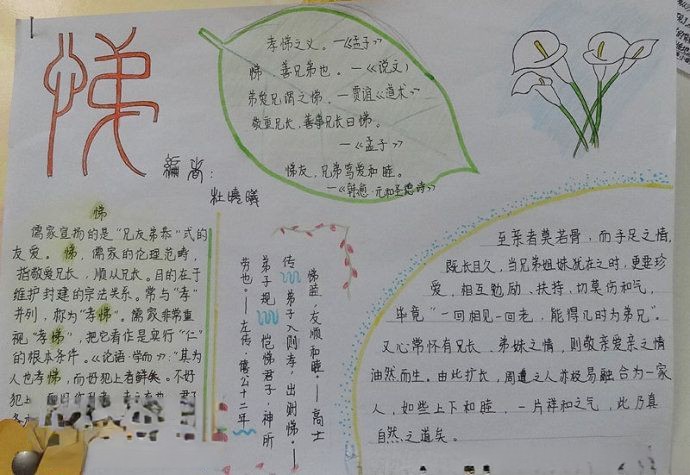 悌
孝悌之义。—《孟子》
悌．善兄弟也。—《说文》
弟爱兄谓之悌．—贾谊《道术》
敬重兄长，善事兄长曰悌。
—《孟子》
悌友，兄弟笃爱和睦。
—《韩愈·元和圣德诗》
编者：
杜晓曦
悌
儒家宣扬的是"兄友弟恭"式的
友爱。悌，儒家的伦理范畴，
指敬爱兄长，顺从兄长。目的在于
维护封建的宗法关系。常与"孝"
并列，称为"孝悌"。儒家非常重
视"孝悌"，把它看作是实行"仁"
的根本条件。《论语·学而》："其为
人也孝悌，而好犯上者鲜矣。不好
犯上
悌益．友顺和睦．—高士
传 弟子入则孝．出则悌—
弟子规 恺悌君子．神所
劳也．—左传．僖公十二年
至亲者莫若骨，而手足之情，
既长且久，当兄弟姐妹犹在之时，更要珍
爱，相互勉励、扶持，切莫伤和气，
毕竟"一回相见一回老，能得几时为弟兄"。
又心常怀有兄长．弟妹之情，则敬亲爱亲之情
油然而生。由此扩长，周遭之人亦极易融合为一家
人，如些上下和睦，一片祥和之气，此乃真
自然之道矣。